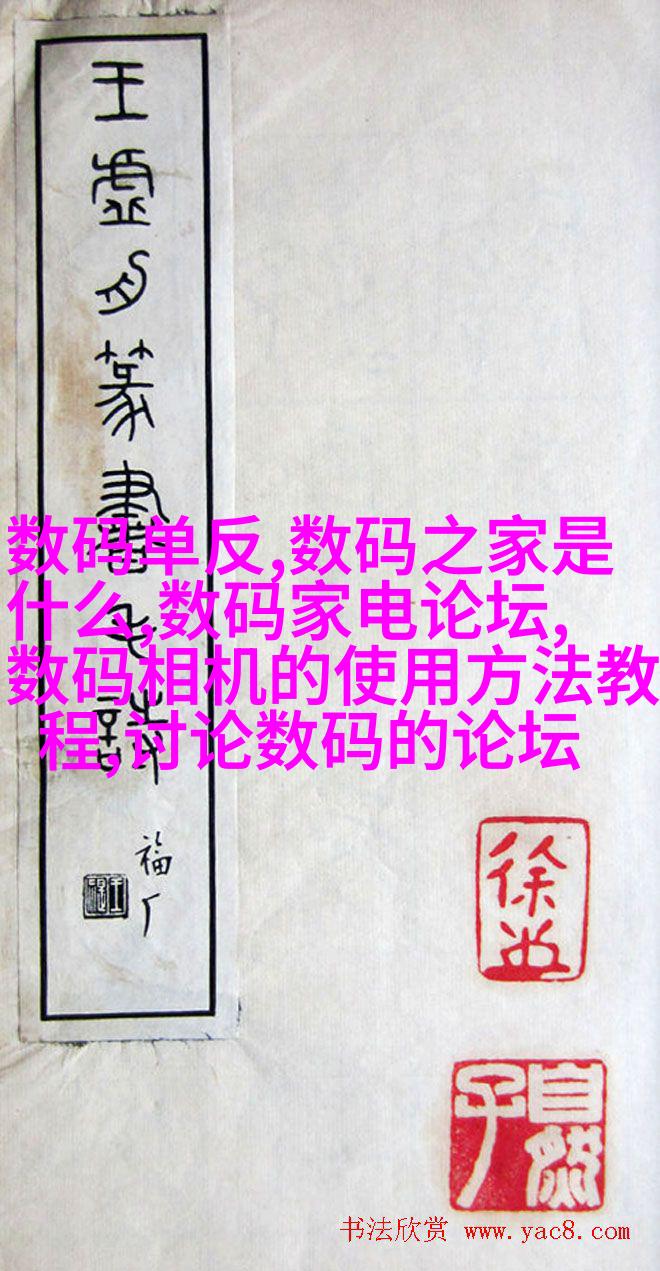 王虛舟篆書毛詩
福厂
数码单反,数码之家是
什么,数码家电论坛,
数码相机的使用方法教
程,讨论数码的论坛
徐
自然子
书法欣赏 www.yac8.com